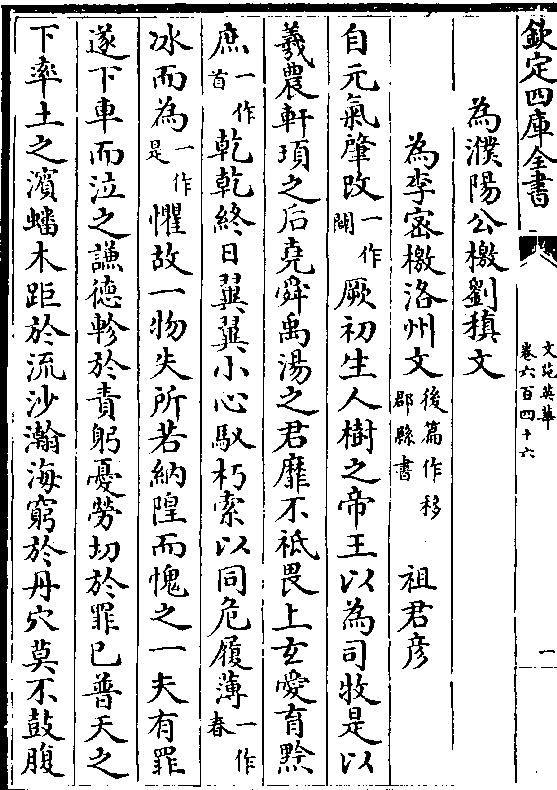 欽定四庫全書
文苑英華
卷六百四十六
一
為濮陽公檄劉稹文
為李密檄洛州文後篇作移郡縣書 祖君彥
自元氣肇改一作闢厥初生人樹之帝王以為司牧是以
羲農軒頊之后堯舜禹湯之君靡不祗畏上玄愛育黔
庶一作首乾乾終日翼翼小心馭朽索以同危履薄一作春
冰而為一作是懼故一物失所若納隍而愧之一夫有罪
遂下車而泣之謙德軫於責躬憂勞切於罪己普天之
下率土之濱蟠木距於流沙瀚海窮於丹穴莫不鼓腹